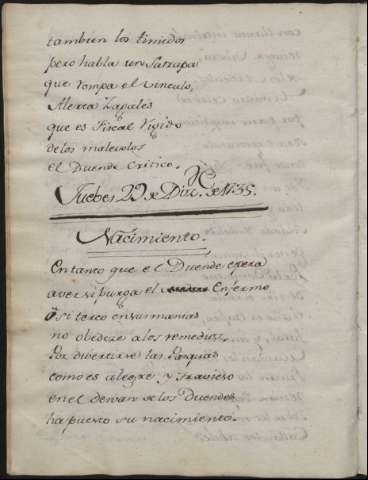 tambien los timidos
pero habla un Satrapa
que rompa el vinculo,
Alerta Zagales
que es Fiscal rigido
delos malevolos
el Duende Critico.
Juebes 29 de Diz.e de 1735.
Nacimiento.
En tanto que el Duende espera
a ver si purga el Enfermo
ô si terco en sus manias
no obedeze a los remedios,
Por divertirse las Pasquas
como es alegre y travieso
en el desvan de los Duendes
ha puesto su nacimiento.